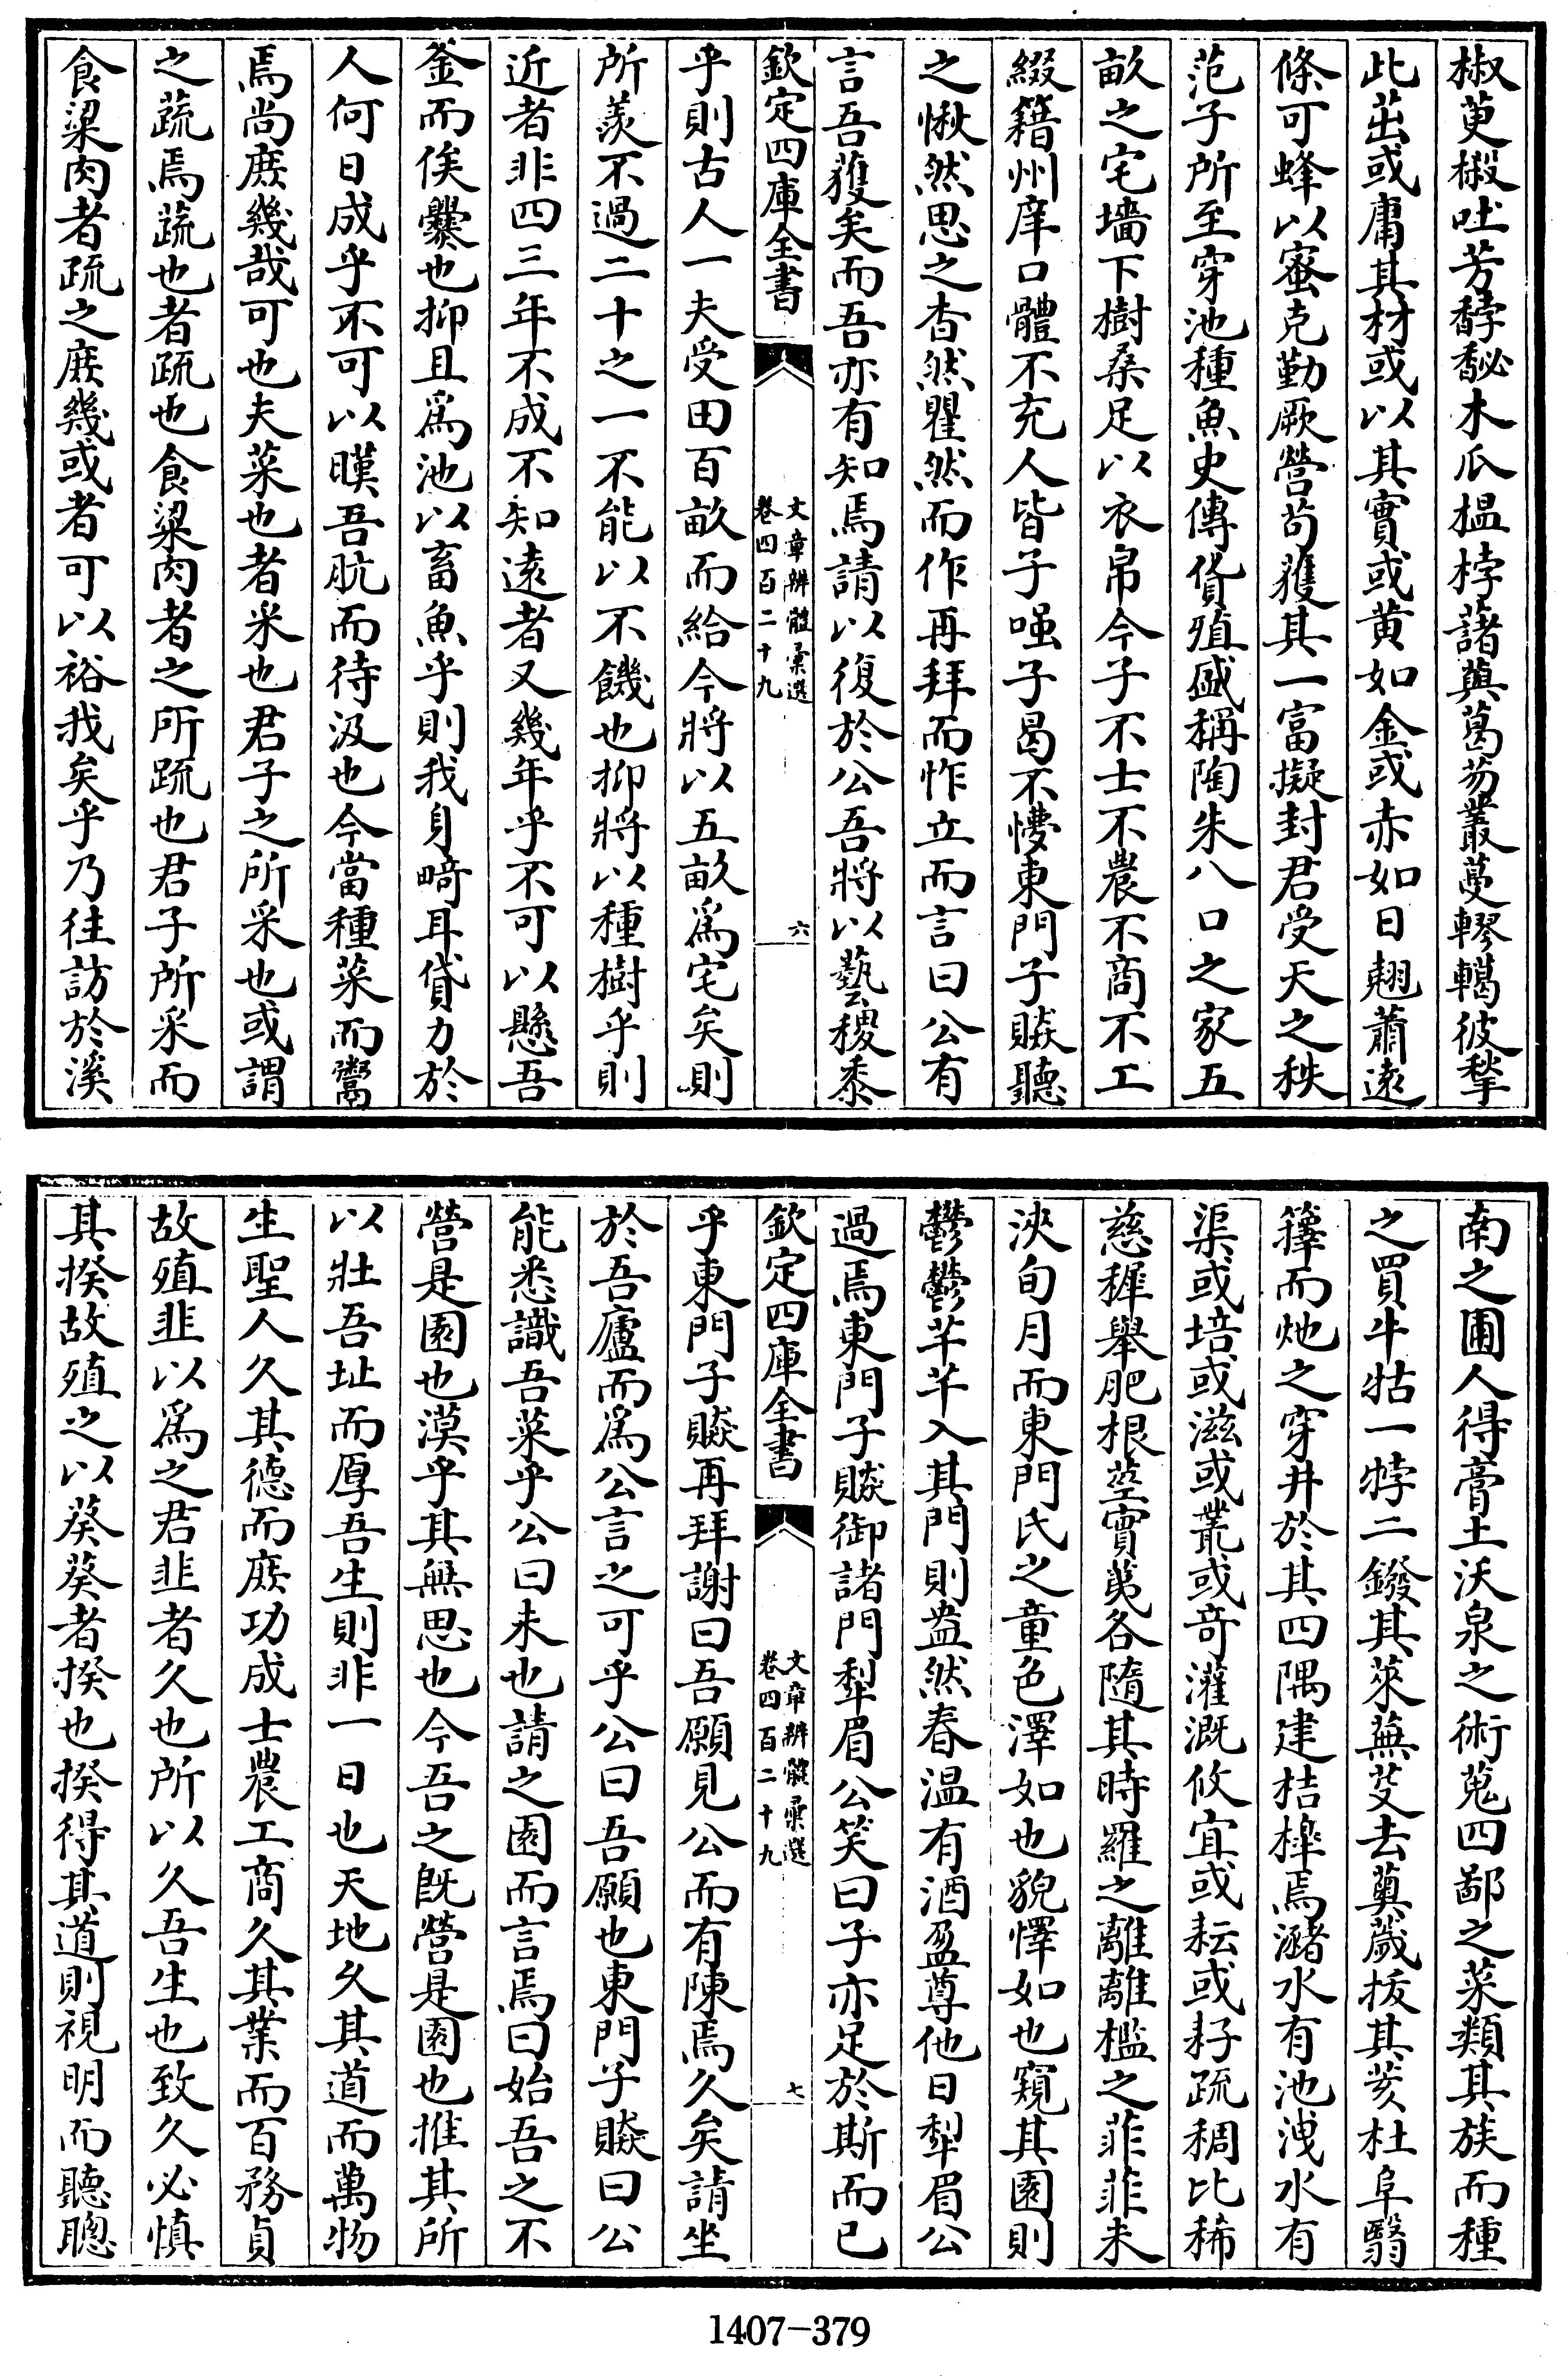 椒萸椴吐芳馞馝木瓜榅桲藷薁葛芴叢蔓轇轕彼揫
此茁或庸其材或以其實或黄如金或赤如日翹蕭遠
條可蜂以蜜克勤厥營苟獲其一富擬封君受天之秩
范子所至穿池種魚史傳貨殖盛稱陶朱八口之家五
畝之宅墻下樹桑足以衣帛今子不士不農不商不工
綴籍州庠口體不充人皆子嗤子曷不慺東門子賧聽
之愀然思之杳然瞿然而作再拜而怍立而言曰公有
言吾蒦矣而吾亦有知焉請以復於公吾將以藝稷黍
欽定四庫全書
文章辨體彙選
卷四百二十九
六
乎則古人一夫受田百畝而給今將以五畝爲宅矣則
所羨不過二十之一不能以不饑也抑將以種樹乎則
近者非四三年不成不知遠者又幾年乎不可以懸吾
釜而俟爨也抑且爲池以畜魚乎則我身畸耳貸力於
人何日成乎不可以暵吾肮而待汲也今當種菜而鬻
焉尚庶幾哉可也夫菜也者米也君子之所采也或謂
之蔬焉蔬也者疏也食粱肉者之所疏也君子所采而
食粱肉者疏之庶幾或者可以裕我矣乎乃往訪於溪
南之圃人得膏土沃泉之術蒐四鄙之菜類其族而種
之買牛牯一牸二鏺其萊蕪芟去薁葳拔其荄杜阜翳
籜而灺之穿井於其四隅建桔槔焉瀦水有池洩水有
渠或培或滋或叢或竒灌溉攸宜或耘或耔疏稠比稀
慈穉舉肥根莖實荑各隨其時羅之離離檻之菲菲未
浹旬月而東門氏之童色澤如也貌懌如也窺其園則
鬱鬱芊芊入其門則盎然春温有酒盈尊他日犁眉公
過焉東門子賧御諸門犁眉公笑曰子亦足於斯而已
欽定四庫全書
文章辨體彙選
卷四百二十九
七
乎東門子賧再拜謝曰吾願見公而有陳焉久矣請坐
於吾廬而爲公言之可乎公曰吾願也東門子賧曰公
能悉識吾菜乎公曰未也請之園而言焉曰始吾之不
營是園也漠乎其無思也今吾之既營是園也推其所
以壯吾址而厚吾生則非一日也天地久其道而萬物
生聖人久其德而庶功成士農工商久其業而百務貞
故殖韭以爲之君韭者久也所以久吾生也致久必慎
其揆故殖之以葵葵者揆也揆得其道則視明而聽聰
1407-379